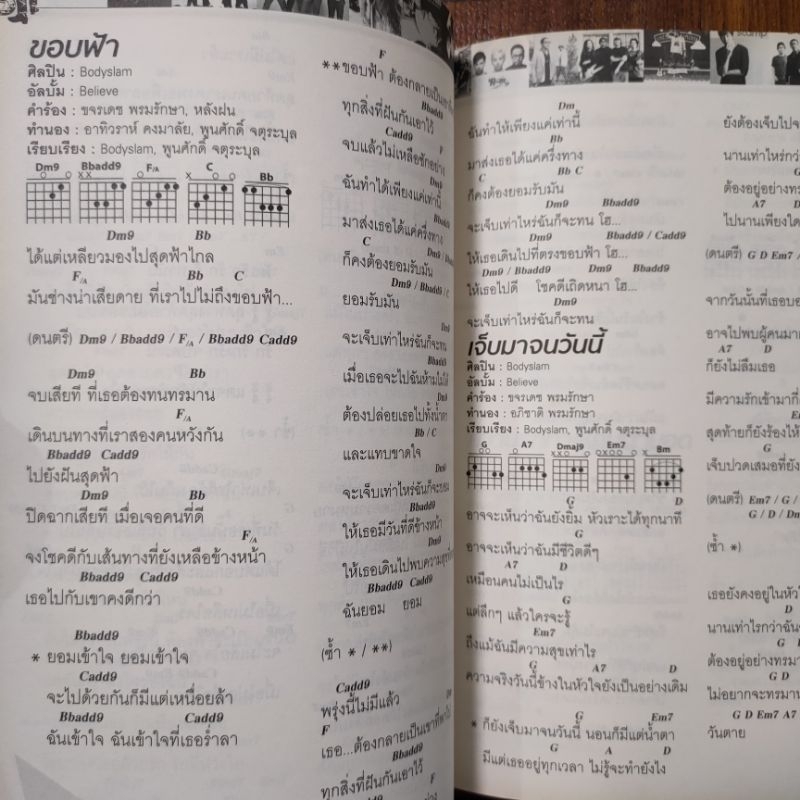 ขอบฟ้า
ศิลปิน : Bodyslam
อัลบั้ม : Believe
คำร้อง : ขจรเดช พรมรักษา, หลังฝน
ทำนอง : อาทิวราห์ คงมาลัย, พูนศักดิ์ จตุระบุล
เรียบเรียง : Bodyslam, พูนศักดิ์ จตุระบุล
Dm9 Bbadd9 F/A C Bb
Dm9 Bb
ได้แต่เหลียวมองไปสุดฟ้าไกล
F/A Bb C
มันช่างน่าเสียดาย ที่เราไปไม่ถึงขอบฟ้า...
(ดนตรี) Dm9 / Bbadd9 / F/A / Bbadd9 Cadd9
Dm9 Bb
จบเสียที ที่เธอต้องทนทรมาน
F/A
เดินบนทางที่เราสองคนหวังกัน
Bbadd9 Cadd9
ไปยังฝันสุดฟ้า
Dm9 Bb
ปิดฉากเสียที เมื่อเจอคนที่ดี
F/A
จงโชคดีกับเส้นทางที่ยังเหลือข้างหน้า
Bbadd9 Cadd9
เธอไปกับเขาคงดีกว่า
Bbadd9
* ยอมเข้าใจ ยอมเข้าใจ
Cadd9
จะไปด้วยกันก็มีแต่เหนื่อยล้า
Bbadd9 Cadd9
ฉันเข้าใจ ฉันเข้าใจที่เธอร่ำลา
F
**ขอบฟ้า ต้องกลายเป็น
Bbadd9
ทุกสิ่งที่ฝันกันเอาไว้
Cadd9 F
จบแล้วไม่เหลือซักอย่าง
Dm9
ฉันทำได้เพียงแค่เท่านี้
Bbadd9
มาส่งเธอได้แค่ครึ่งทาง
C
ก็คงต้องยอมรับมัน
Dm9 / Bbadd9 / C
ยอมรับมัน
Dm9
จะเจ็บเท่าไหร่ฉันก็จะทน
Bbadd9
เมื่อเธอจะไปฉันห้ามไม่ได้
Dm9
ต้องปล่อยเธอไปทั้งน้ำตา
Bb / C
และแทบขาดใจ
Dm9
จะเจ็บเท่าไหร่ฉันก็จะยอม
Bbadd9
ให้เธอมีวันที่ดีข้างหน้า
Dm9
ให้เธอเดินไปพบความสุข
Bbadd9 Cadd9
ฉันยอม ยอม
(ซ้ำ * / **)
Cadd9
พรุ่งนี้ไม่มีแล้ว
F
เธอ...ต้องกลายเป็นเขา
Bbadd9
ทุกสิ่งที่ฝันกันเอาไว้
F
Dm
ฉันทำให้เพียงแค่เท่านี้
Bb
มาส่งเธอได้แค่ครึ่งทาง
C Bb C
ก็คงต้องยอมรับมัน
Dm9 Bbadd9
จะเจ็บเท่าไหร่ฉันก็จะทน โฮ...
Dm9 Bbadd9 / Cadd9
ให้เธอเดินไปที่ตรงขอบฟ้า โฮ...
Dm9 / Bbadd9 Dm9 Bbadd9
ให้เธอไปดี โชคดีเถิดหนา โฮ...
Dm9
จะเจ็บเท่าไหร่ฉันก็จะทน
เจ็บมาจนวันนี้
ศิลปิน : Bodyslam
อัลบั้ม : Believe
คำร้อง : ขจรเดช พรมรักษา
ทำนอง : อภิชาติ พรมรักษา
เรียบเรียง : Bodyslam, พูนศักดิ์ จตุระบุล
G A7 Dmaj9 Em7 Bm
G D
อาจจะเห็นว่าฉันยังยิ้ม หัวเราะได้ทุกนาที
G
อาจจะเห็นว่าฉันมีชีวิตดีๆ
A7 D
เหมือนคนไม่เป็นไร
G
แต่ลึกๆ แล้วใครจะรู้
Em7
ถึงแม้ฉันมีความสุขเท่าไร
G A7 D
ความจริงวันนี้ข้างในหัวใจยังเป็นอย่างเดิม
G Em7
* ก็ยังเจ็บมาจนวันนี้ นอนก็มีแต่น้ำตา
G A D
มีแต่เธออยู่ทุกเวลา ไม่รู้จะทำยังไง
ยังต้องเจ็บไป
นานเท่าไหร่
G
ต้องอยู่อย่างทร
A7 D
ไปนานเพียงใด
(ดนตรี) G D Em7
จากวันนั้นที่เธอบอ
อาจไปพบผู้คนมา
A7 D
ก็ยังไม่ลืมเธอ
มีความรักเข้ามา
สุดท้ายก็ยังร้องไห้
G
เจ็บปวดเสมอที่ยัง
(ดนตรี) Em7 / G /
G / D /
(ซ้ำ *)
เธอยังคงอยู่ในหัวใ
D
นานเท่าไรกว่าฉัน
G D
ต้องอยู่อย่างทรมา
G D
ไม่อยากจะทรมาน
G D Em7 A7
วันตาย